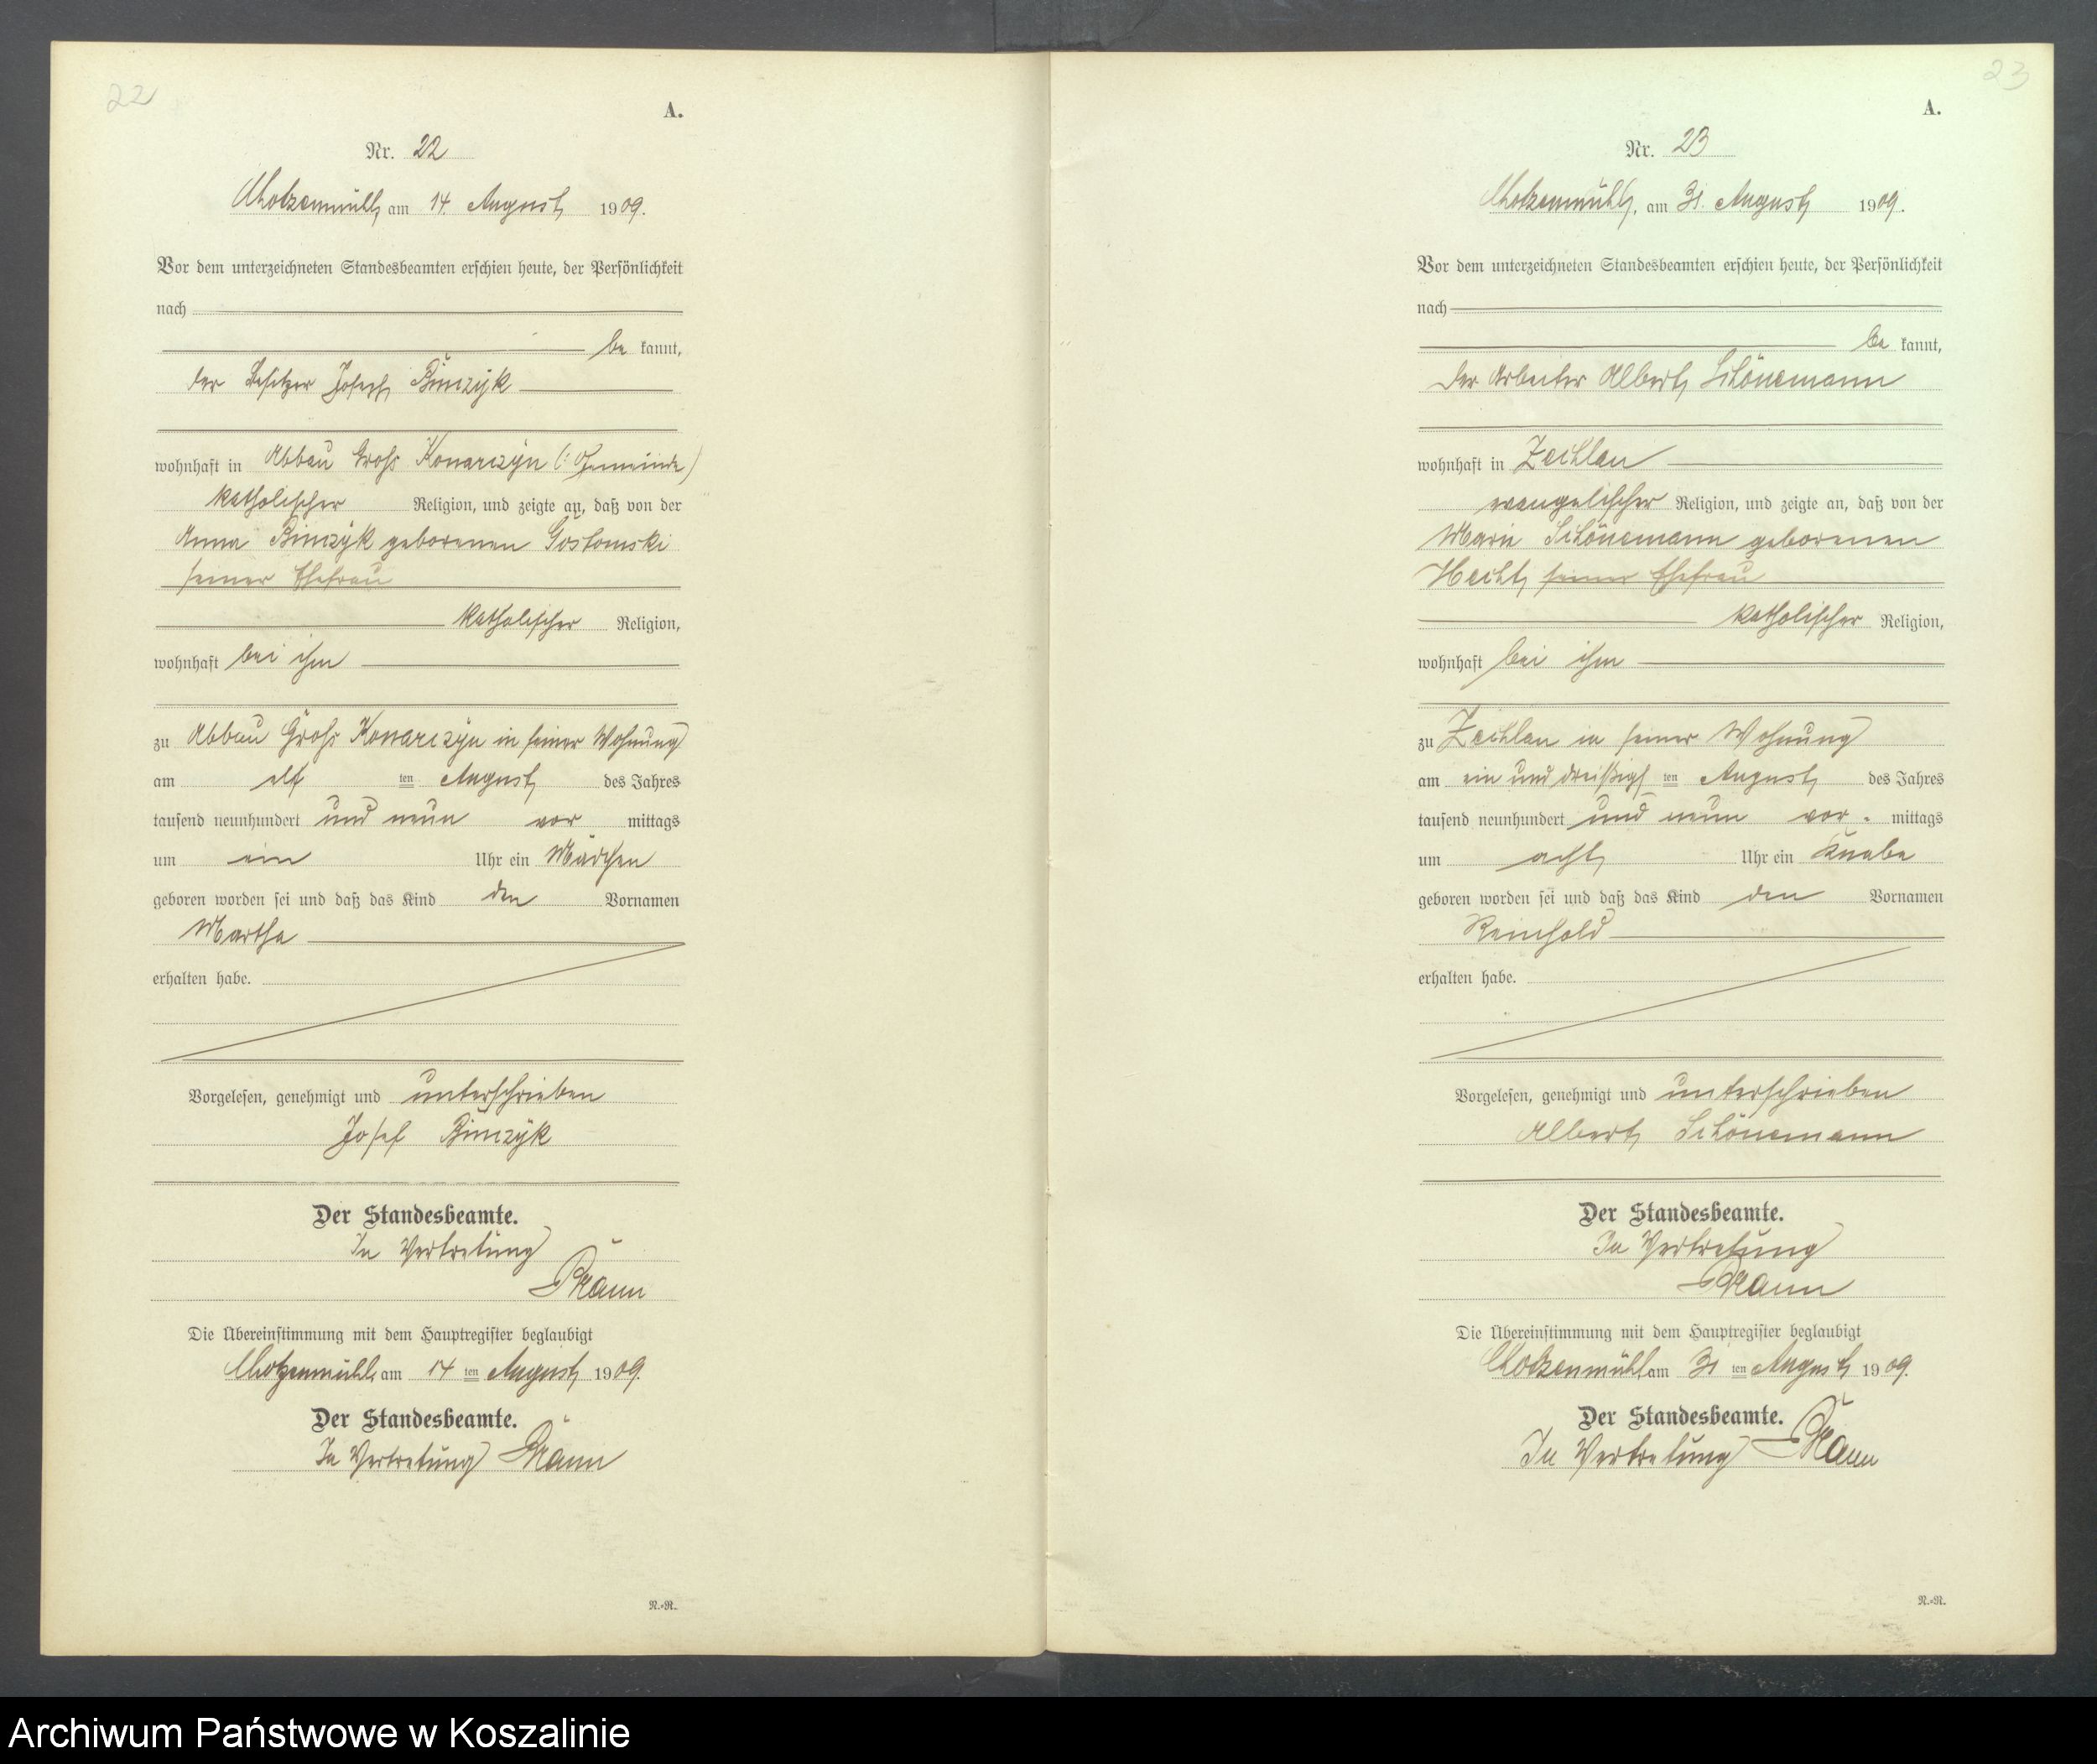 22
A.
Nr. 22
Chotzenmühl, am 14. August 1909.
Vor dem unterzeichneten Standesbeamten erschien heute, der Persönlichkeit
nach
be kannt,
der Besitzer Josef Binczyk
wohnhaft in Abbau Groß Konarczyn (: Gemeinde)
katholischer Religion, und zeigte an, daß von der
Anna Binczyk geborenen Gostomski
seiner Ehefrau
katholischer Religion,
wohnhaft bei ihm
zu Abbau Groß Konarczyn in seiner Wohnung
am elf ten August des Jahres
tausend neunhundert und neun vor mittags
um ein Uhr ein Mädchen
geboren worden sei und daß das Kind den Vornamen
Martha
erhalten habe.
Vorgelesen, genehmigt und unterschrieben
Josef Binczyk
Der Standesbeamte.
In Vertretung
Die Übereinstimmung mit dem Hauptregister beglaubigt
Chotzenmühl, am 14 ten August 1909.
Der Standesbeamte.
In Vertretung
N.-R.
23
A.
Nr. 23
Chotzenmühl, am 31. August 1909.
Vor dem unterzeichneten Standesbeamten erschien heute, der Persönlichkeit
nach
be kannt,
der Arbeiter Albert Schönemann
wohnhaft in Zechlau
evangelischer Religion, und zeigte an, daß von der
Marie Schönemann geborenen
Hecht, seiner Ehefrau
katholischer Religion,
wohnhaft bei ihm
zu Zechlau in seiner Wohnung
am ein und dreißigs ten August des Jahres
tausend neunhundert und neun vor- mittags
um acht Uhr ein Knabe
geboren worden sei und daß das Kind den Vornamen
Reinhold
erhalten habe.
Vorgelesen, genehmigt und unterschrieben
Albert Schönemann
Der Standesbeamte.
In Vertretung
Die Übereinstimmung mit dem Hauptregister beglaubigt
Chotzenmühl am 31 ten August 1909.
Der Standesbeamte.
In Vertretung
N.-R.
Archiwum Państwowe w Koszalinie